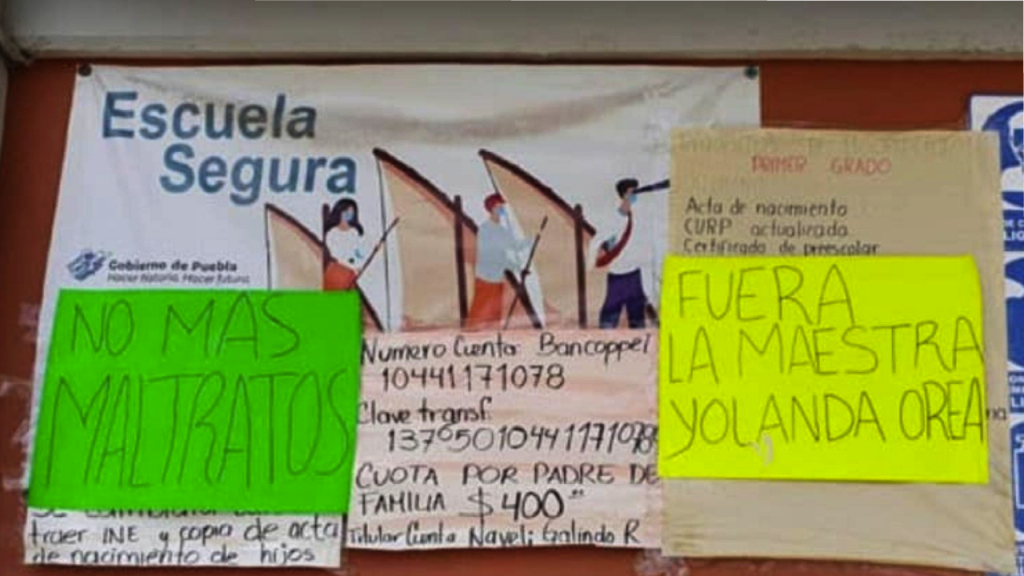 Escuela
Segura
Gobierno de Puebla
Hacer historia. Hacer futuro.
NO MAS
MALTRATOS
traer INE y copia de acta
de nacimiento de hijos
Numero Cuenta Bancoppel
10441171078
Clave transf.
137050104411710789
CUOTA POR PADRE DE
FAMILIA $400
Titular Cuenta Nayeli Galindo R
PRIMER GRADO
Acta de nacimiento
CURP actualizada
Certificado de preescolar
FUERA
LA MAESTRA
YOLANDA OREA